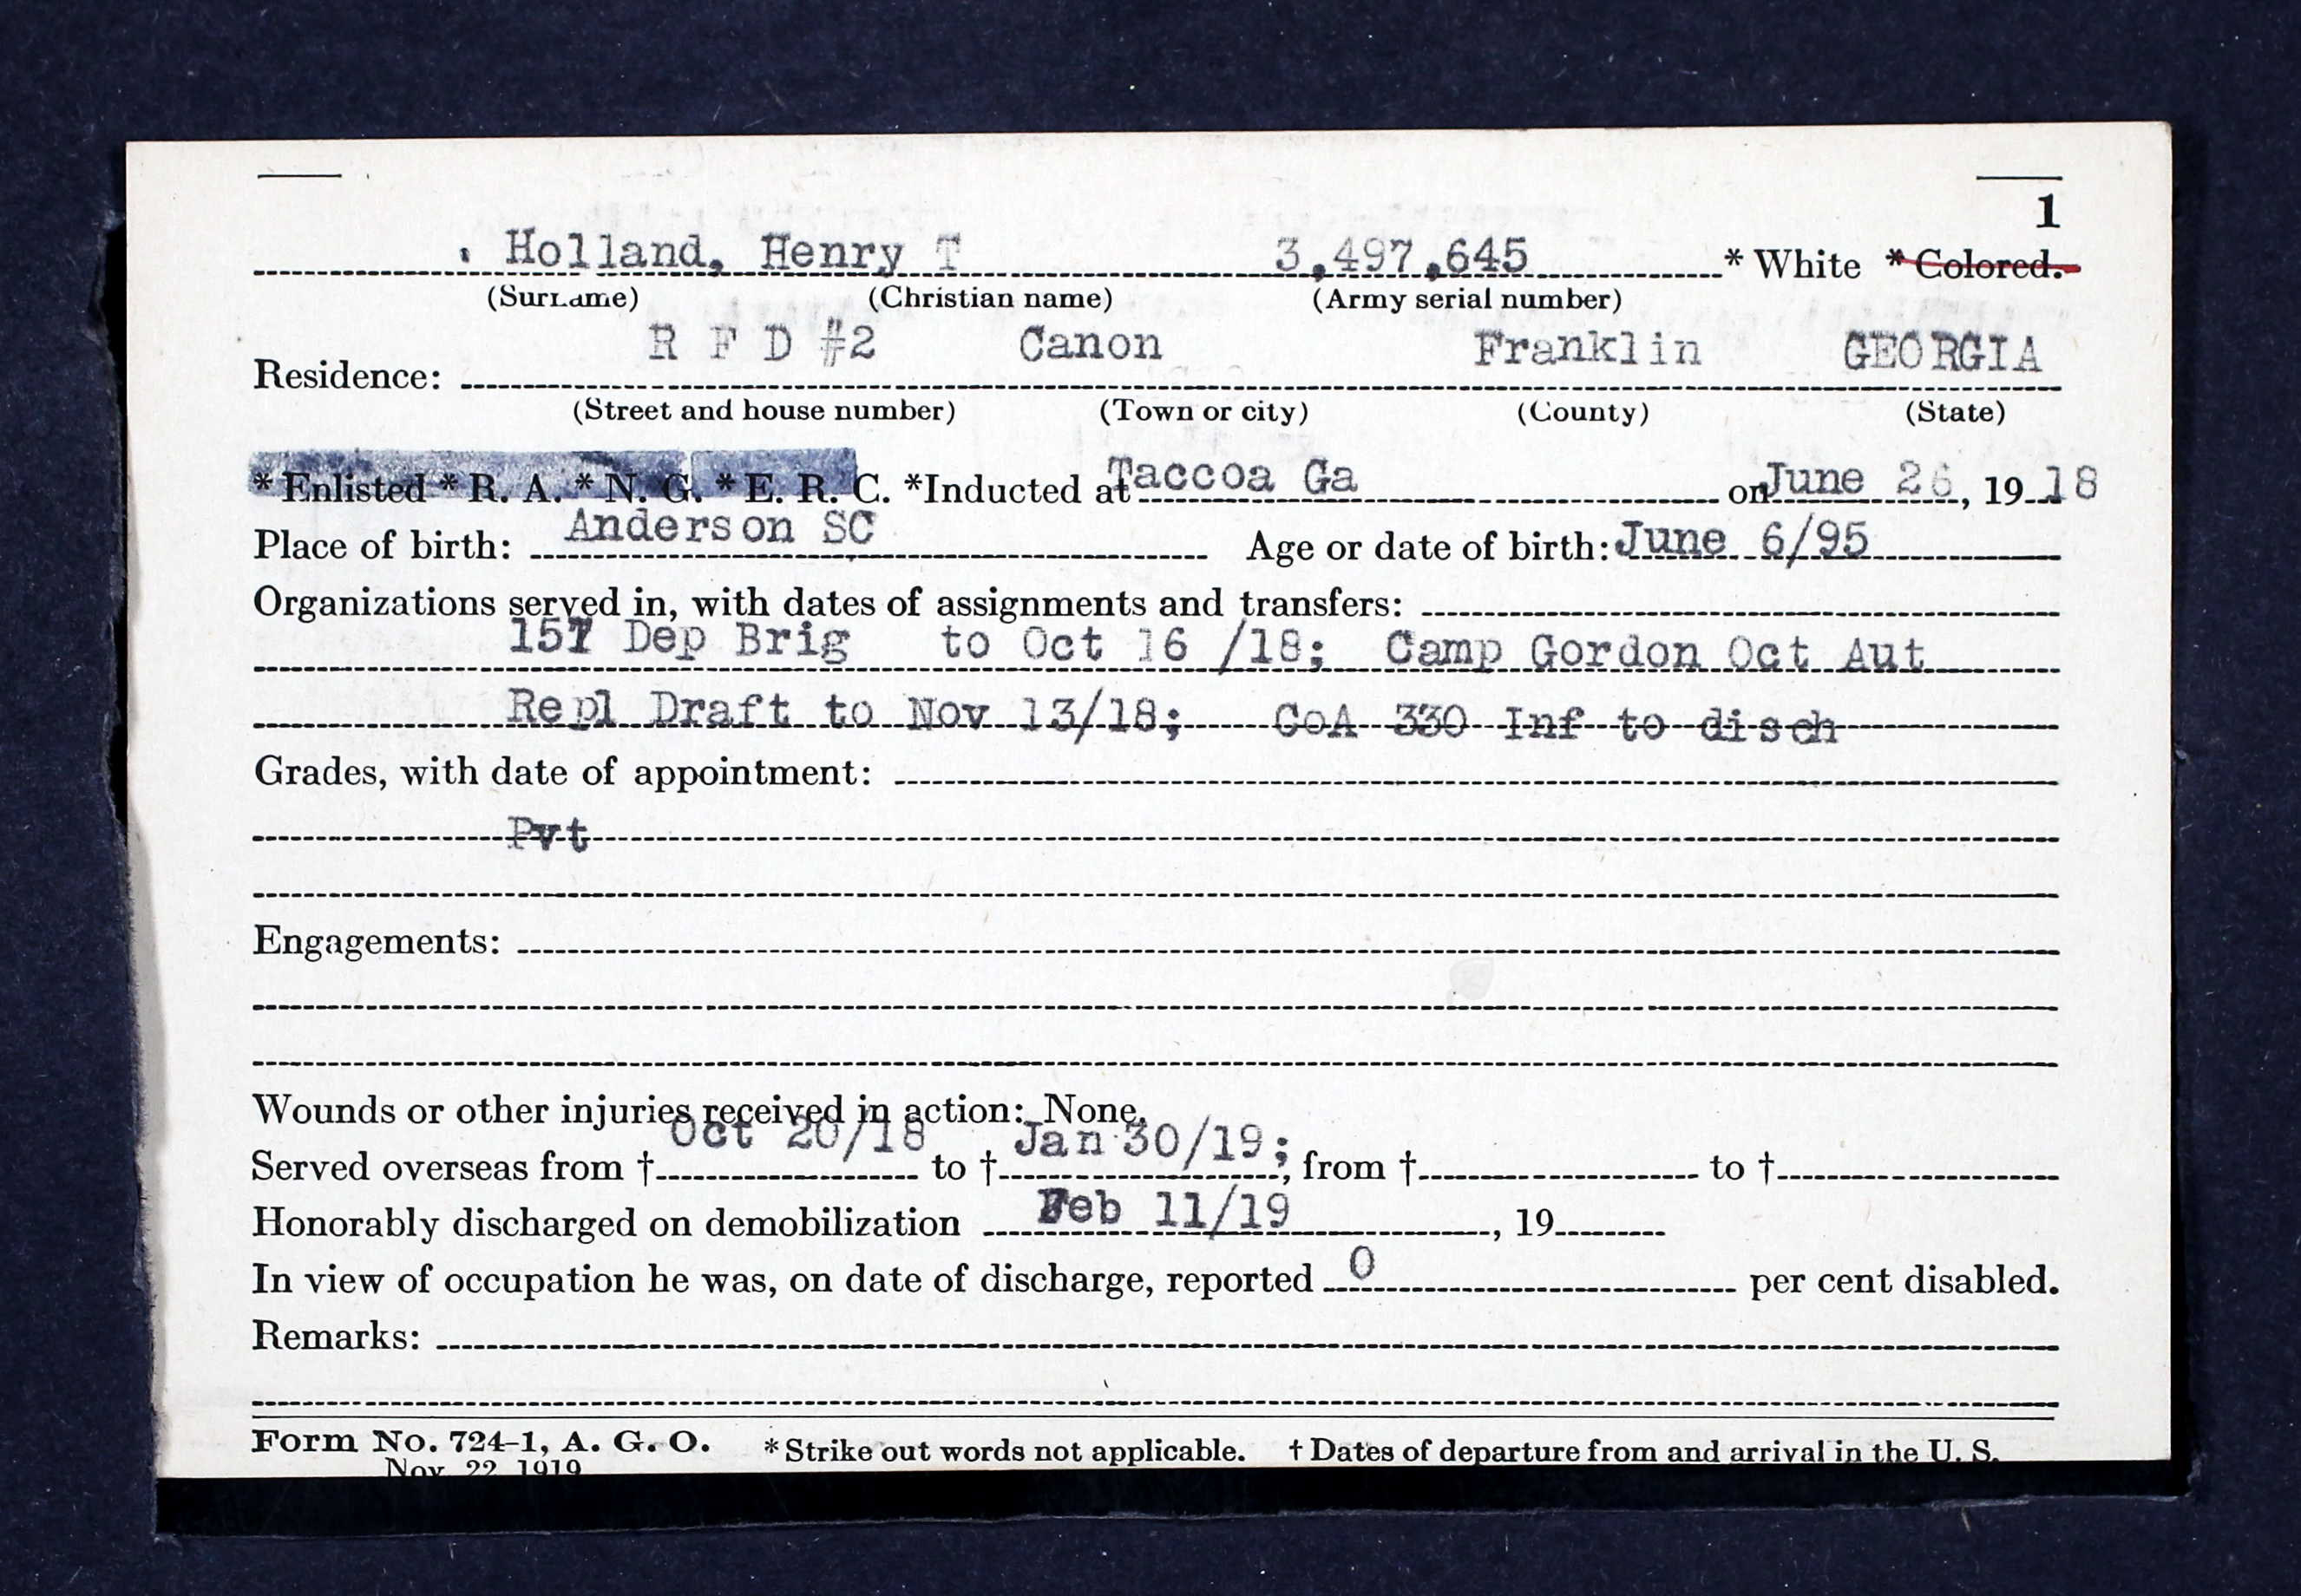 1
Holland, Henry T 3,497,645 * White * Colored.
(Surname) (Christian name) (Army serial number)
R F D #2 Canon Franklin GEORGIA
Residence:
(Street and house number) (Town or city) (County) (State)
* Enlisted * R. A. * N. G. * E. R. C. *Inducted at Taccoa Ga on June 26, 19 18
Place of birth: Anderson SC Age or date of birth: June 6/95
Organizations served in, with dates of assignments and transfers:
157 Dep Brig to Oct 16 /18; Camp Gordon Oct Aut
Repl Draft to Nov 13/18; CoA 330 Inf to disch
Grades, with date of appointment:
Pvt
Engagements:
Wounds or other injuries received in action: None.
Served overseas from † Oct 20/18 to † Jan 30/19; , from † to †
Honorably discharged on demobilization Feb 11/19 , 19
In view of occupation he was, on date of discharge, reported 0 per cent disabled.
Remarks:
Form No. 724-1, A. G. O. * Strike out words not applicable. † Dates of departure from and arrival in the U. S.
Nov. 22, 1919